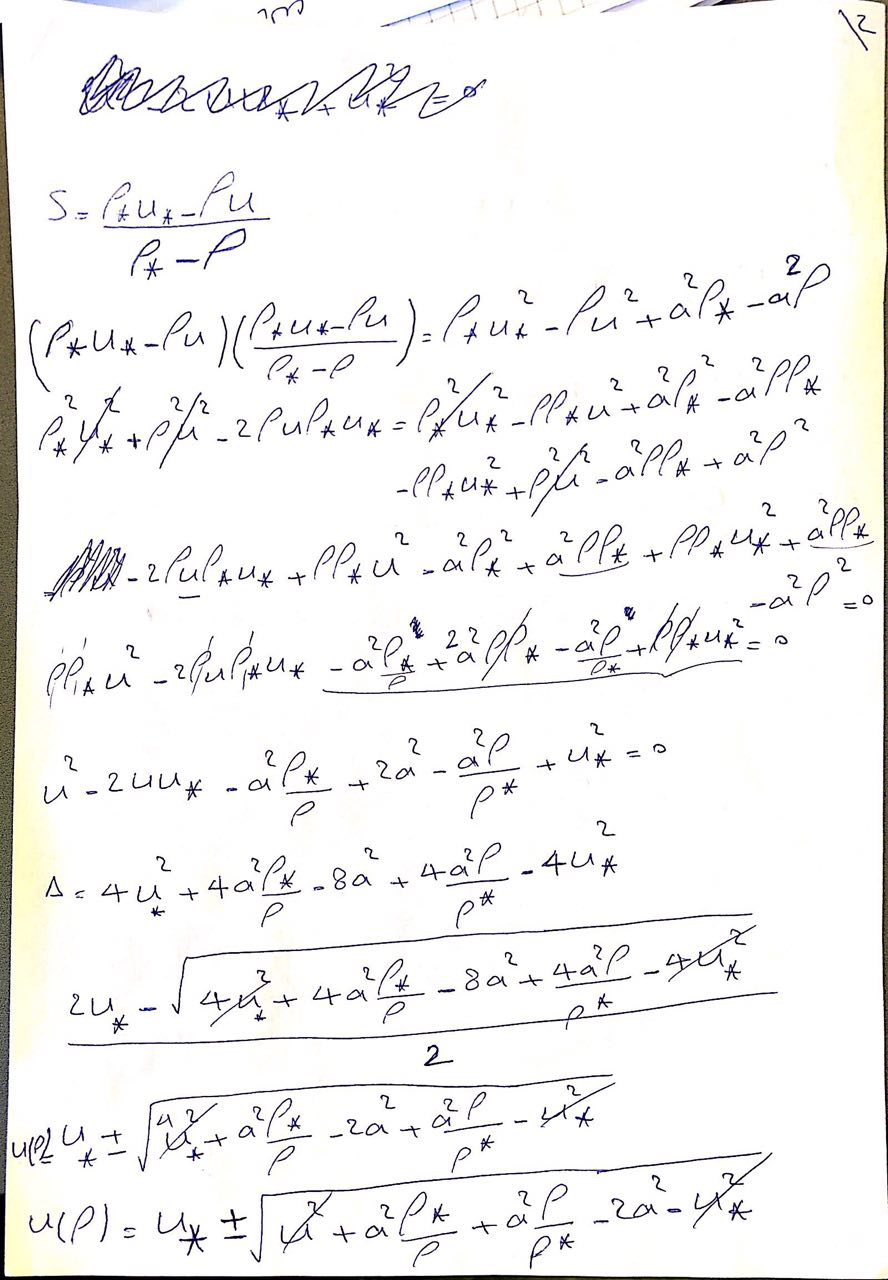 12
S = (ρ_* u_* - ρu) / (ρ_* - ρ)
(ρ_* u_* - ρu)((ρ_* u_* - ρu) / (ρ_* - ρ)) = ρ_* u_*² - ρu² + a²ρ_* - a²ρ
ρ_*² u_*² + ρ²u² - 2ρuρ_* u_* = ρ_*² u_*² - ρρ_* u² + a²ρ_*² - a²ρρ_*
-ρρ_* u_*² + ρ²u² - a²ρρ_* + a²ρ²
-2ρuρ_* u_* + ρρ_* u² - a²ρ_*² + a²ρρ_* + ρρ_* u_*² + a²ρρ_*
-a²ρ² = 0
ρρ_* u² - 2ρuρ_* u_* - a²ρ_*/ρ + 2a²ρρ_* - a²ρ/ρ_* + ρρ_* u_*² = 0
u² - 2uu_* - a²ρ_*/ρ + 2a² - a²ρ/ρ* + u_*² = 0
Δ = 4u_*² + 4a²ρ_*/ρ - 8a² + 4a²ρ/ρ* - 4u_*²
(2u_* - √(4u_*² + 4a²ρ_*/ρ - 8a² + 4a²ρ/ρ* - 4u_*²)) / 2
u(ρ) = u_* ± √(u_*² + a²ρ_*/ρ - 2a² + a²ρ/ρ* - u_*²)
u(ρ) = u_* ± √(u² + a²ρ_*/ρ + a²ρ/ρ* - 2a² - u_*²)